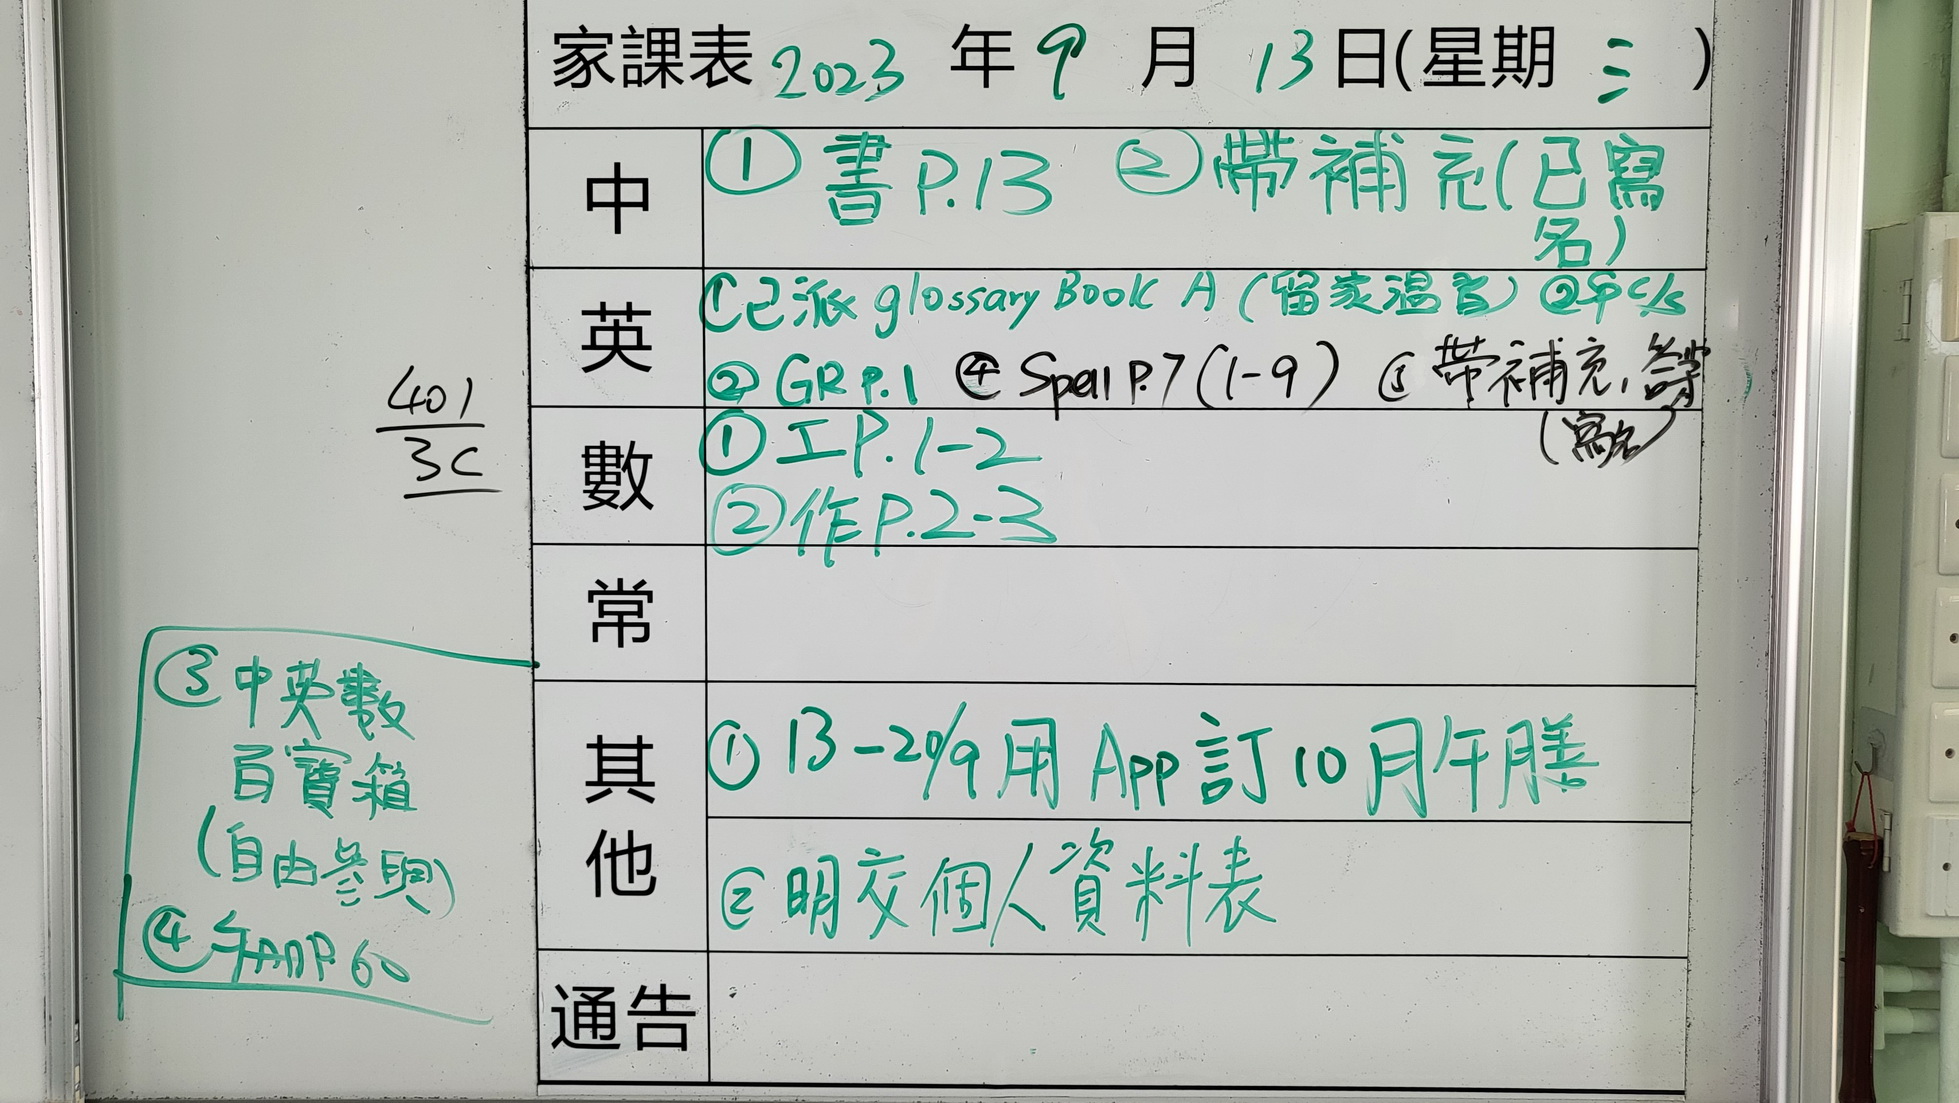 家課表 2023 年 9 月 13 日(星期 三 )
中
① 書 P.13 ② 帶補充(已寫
名)
英
① 已派 glossary Book A (留家温習) ②
② GR P.1 ④ Spell P.7 (1-9) 帶補充,
(寫名)
數
① 工 P.1-2
② 作 P.2-3
常
其他
① 13-20/9 用 App 訂 10 月午膳
② 明交個人資料表
通告
401
3C
③ 中英數
百寶箱
(自由參與)
④ P.60